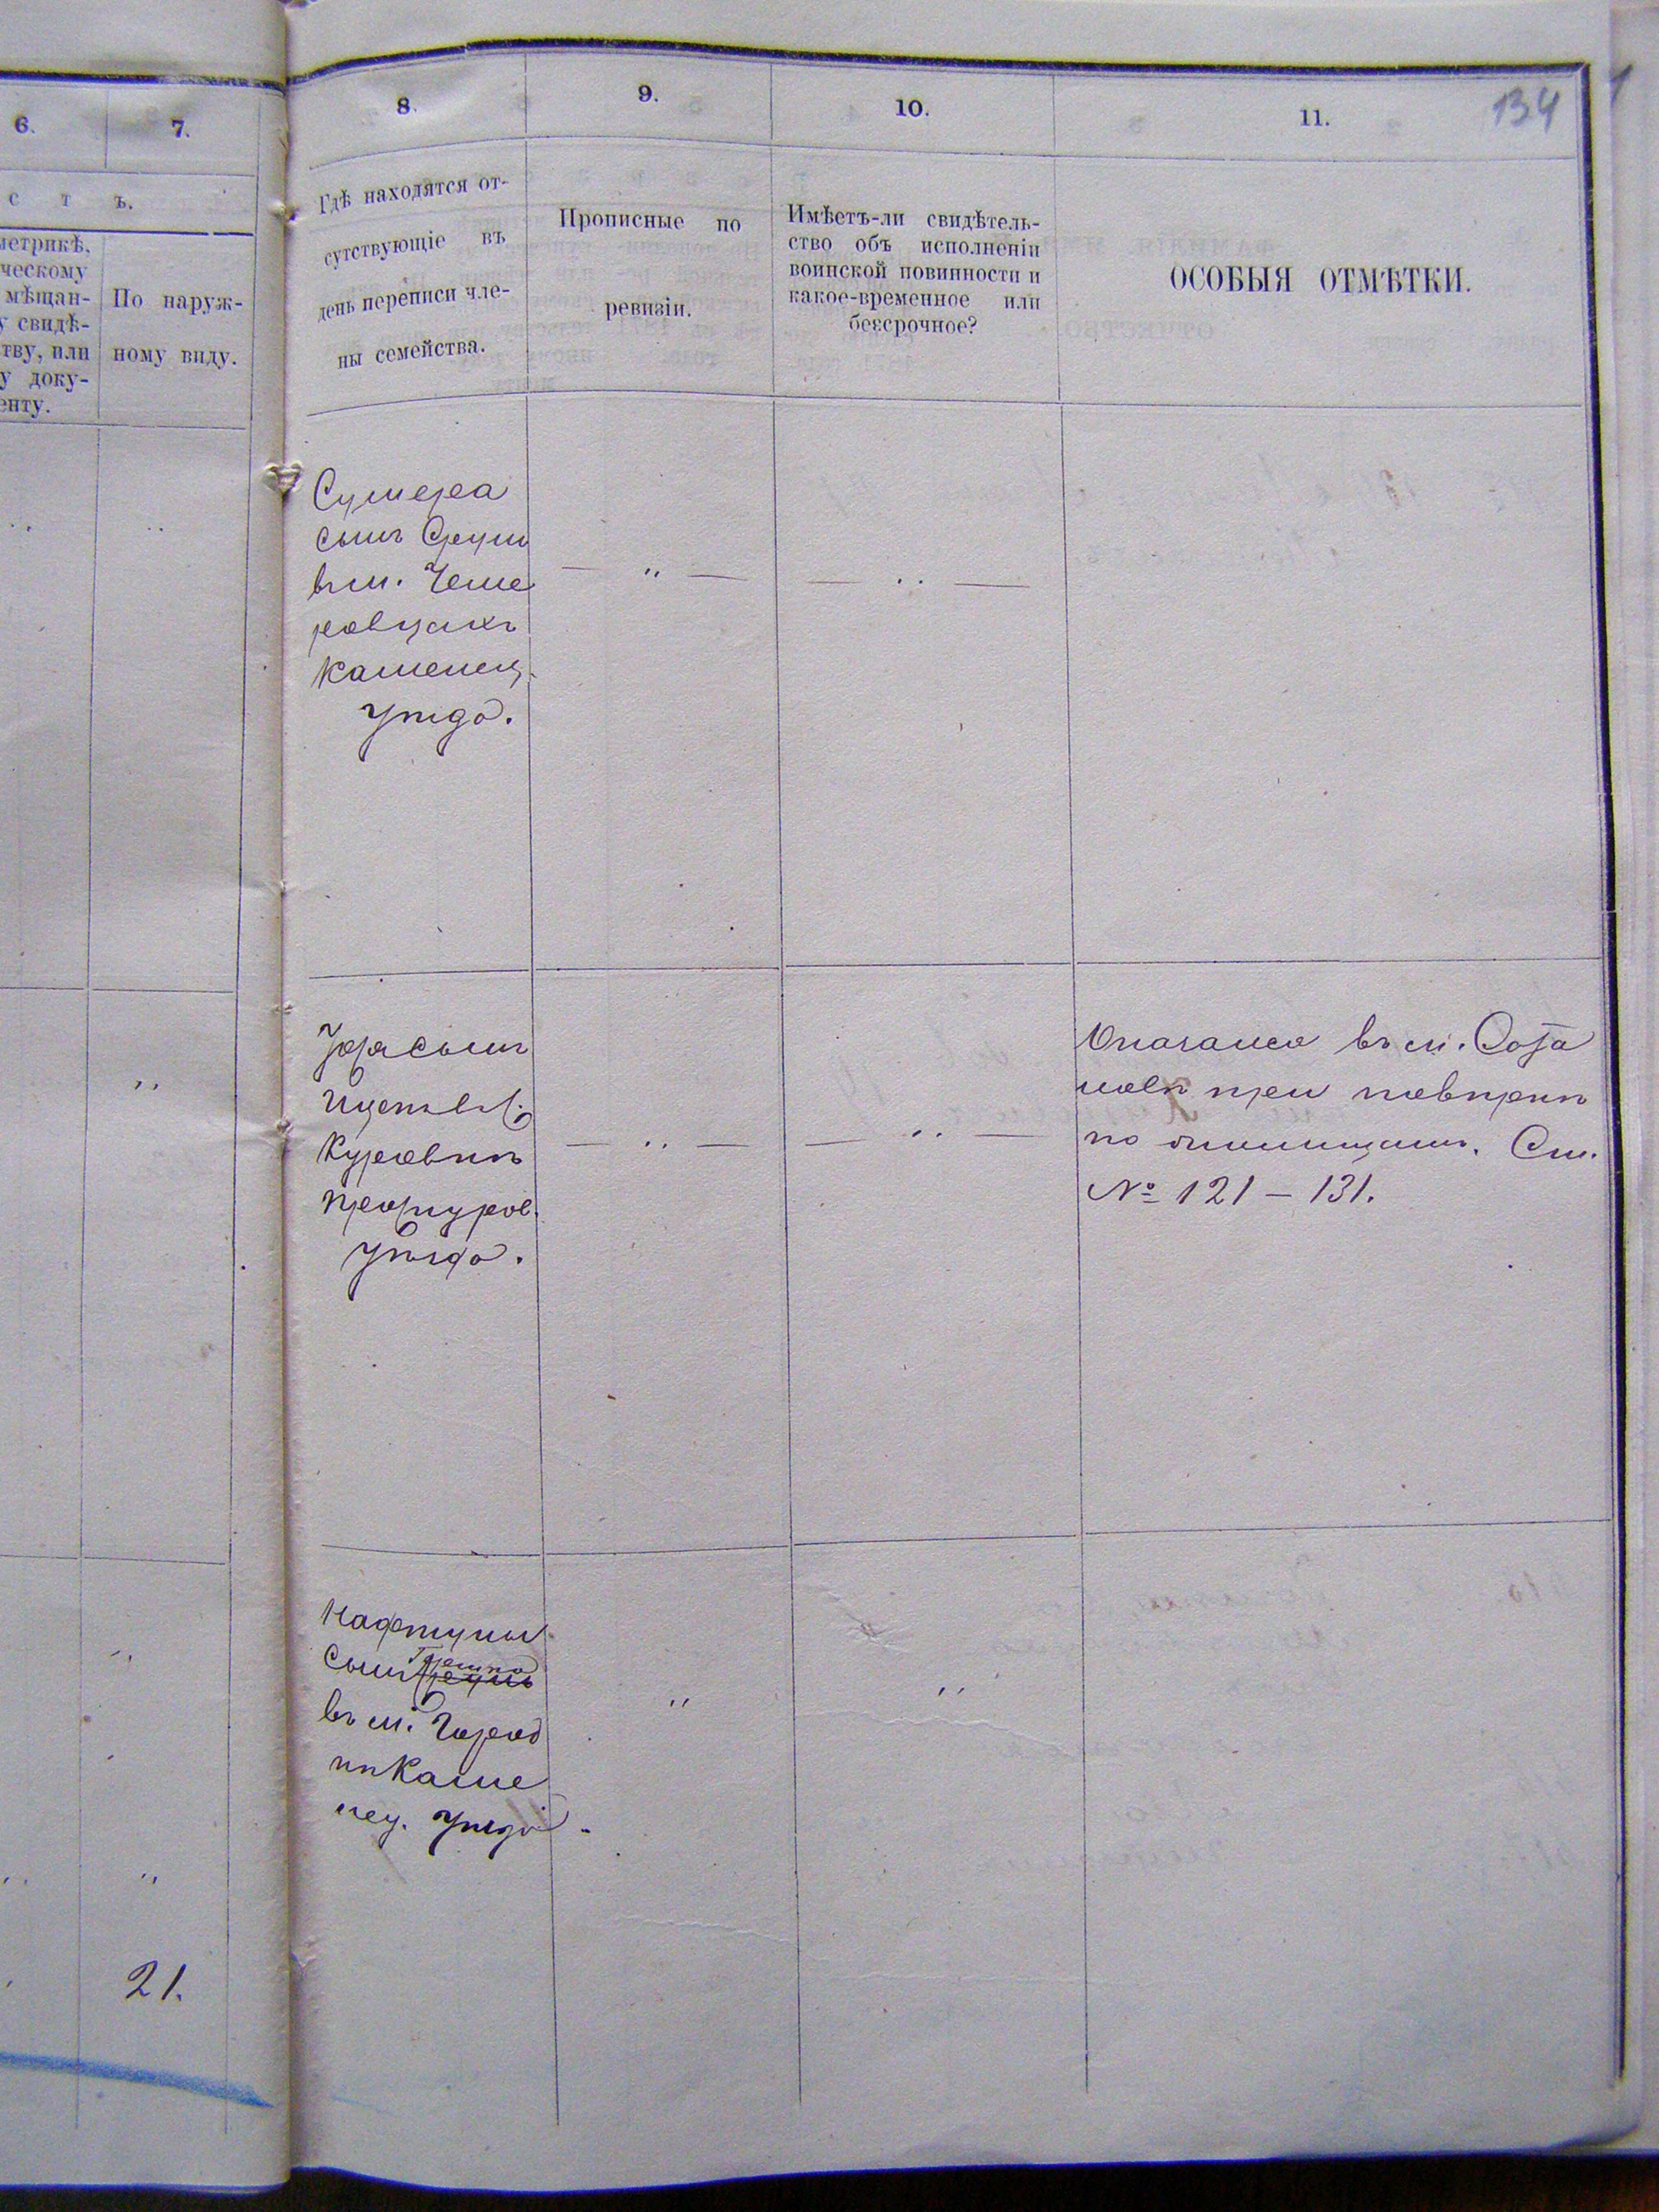 6.
7.
с т ъ.
метрикѣ,
ческому
мѣщан-
у свидѣ-
тву, или
у доку-
енту.
По наруж-
ному виду.
21.
8.
9.
10.
11.
134
Гдѣ находятся от-
сутствующіе въ
день переписи чле-
ны семейства.
Прописные по
ревизіи.
Имѣетъ-ли свидѣтель-
ство объ исполненіи
воинской повинности и
какое-временное или
безсрочное?
ОСОБЫЯ ОТМѢТКИ.
сынъ Сруль
въ м. Чеме
ровцахъ
Каменец.
уѣзда.
сынъ
Ицекъ въ с.
Куровкѣ
Проскуров.
уѣзда.
Оказался въ м. Сата
новѣ при повѣркѣ
по околицамъ. См.
№ 121 – 131.
Нафтулы
сынъ Гершко
въ м. Город
кѣ Каме
нец. уѣзда.